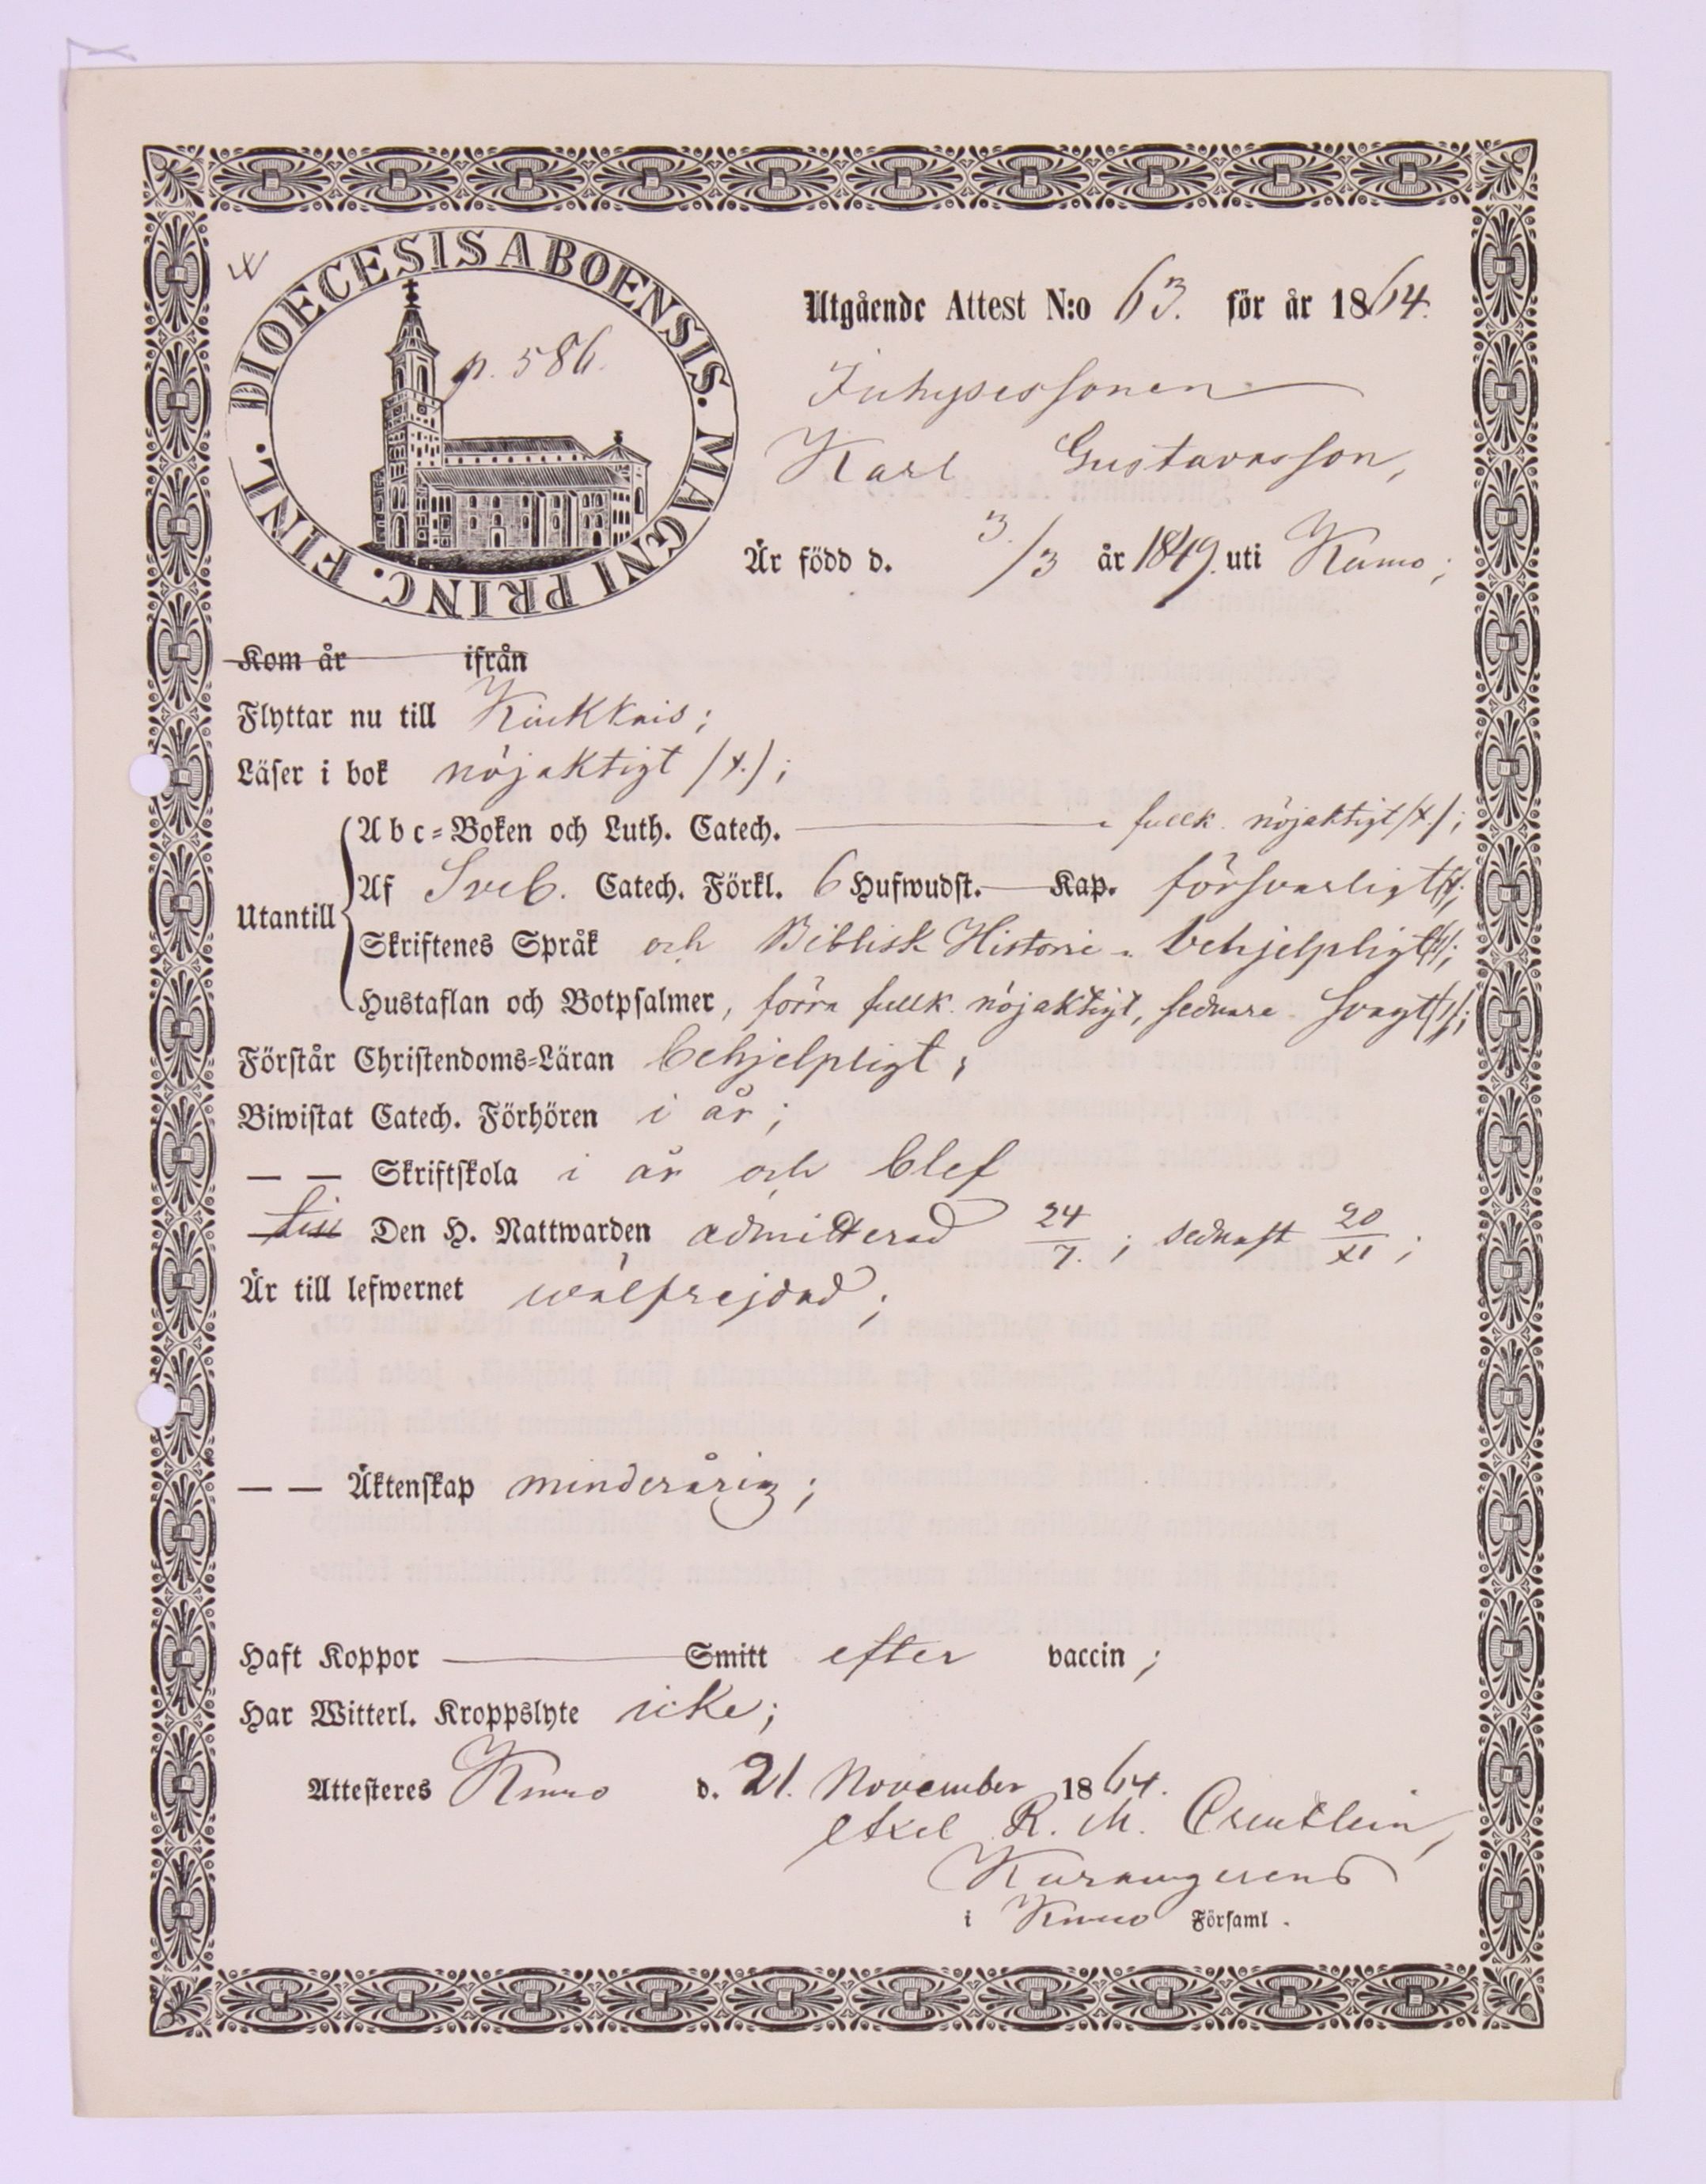 DIOECESIS ABOENSIS. MAGNI PRINC. FINL.
p. 586.
Utgående Attest N:o 63. för år 1864.
Inhysessonen
Karl Gustavsson,
Är född d. 3./3 år 1849. uti Kumo;
Kom år ifrån
Flyttar nu till Kiukkais;
Läser i bok nöjaktigt /4./;
Utantill
Abc-Boken och Luth. Catech. fullk. nöjaktigt /4./;
Af Sveb. Catech. Förkl. 6 Hufwudst. Kap. försvarligt
Skriftenes Språk och Biblisk Historie behjelpligt
Hustaflan och Botpsalmer, förra fullk. nöjaktigt, sednare svagt /1/;
Förstår Christendoms-Läran behjelpligt;
Biwistat Catech. Förhören i år;
— — Skriftskola i år och blef
till Den H. Nattwarden admitterad 24/7.; sednast 20/XI;
Är till lefwernet wälfrejdad;
— — Äktenskap minderårig;
Haft Koppor Smitt efter vaccin;
Har Witterl. Kroppslyte icke;
Attesteres Kumo d. 21. November 1864.
Axel R. M.
i Kumo Församl.